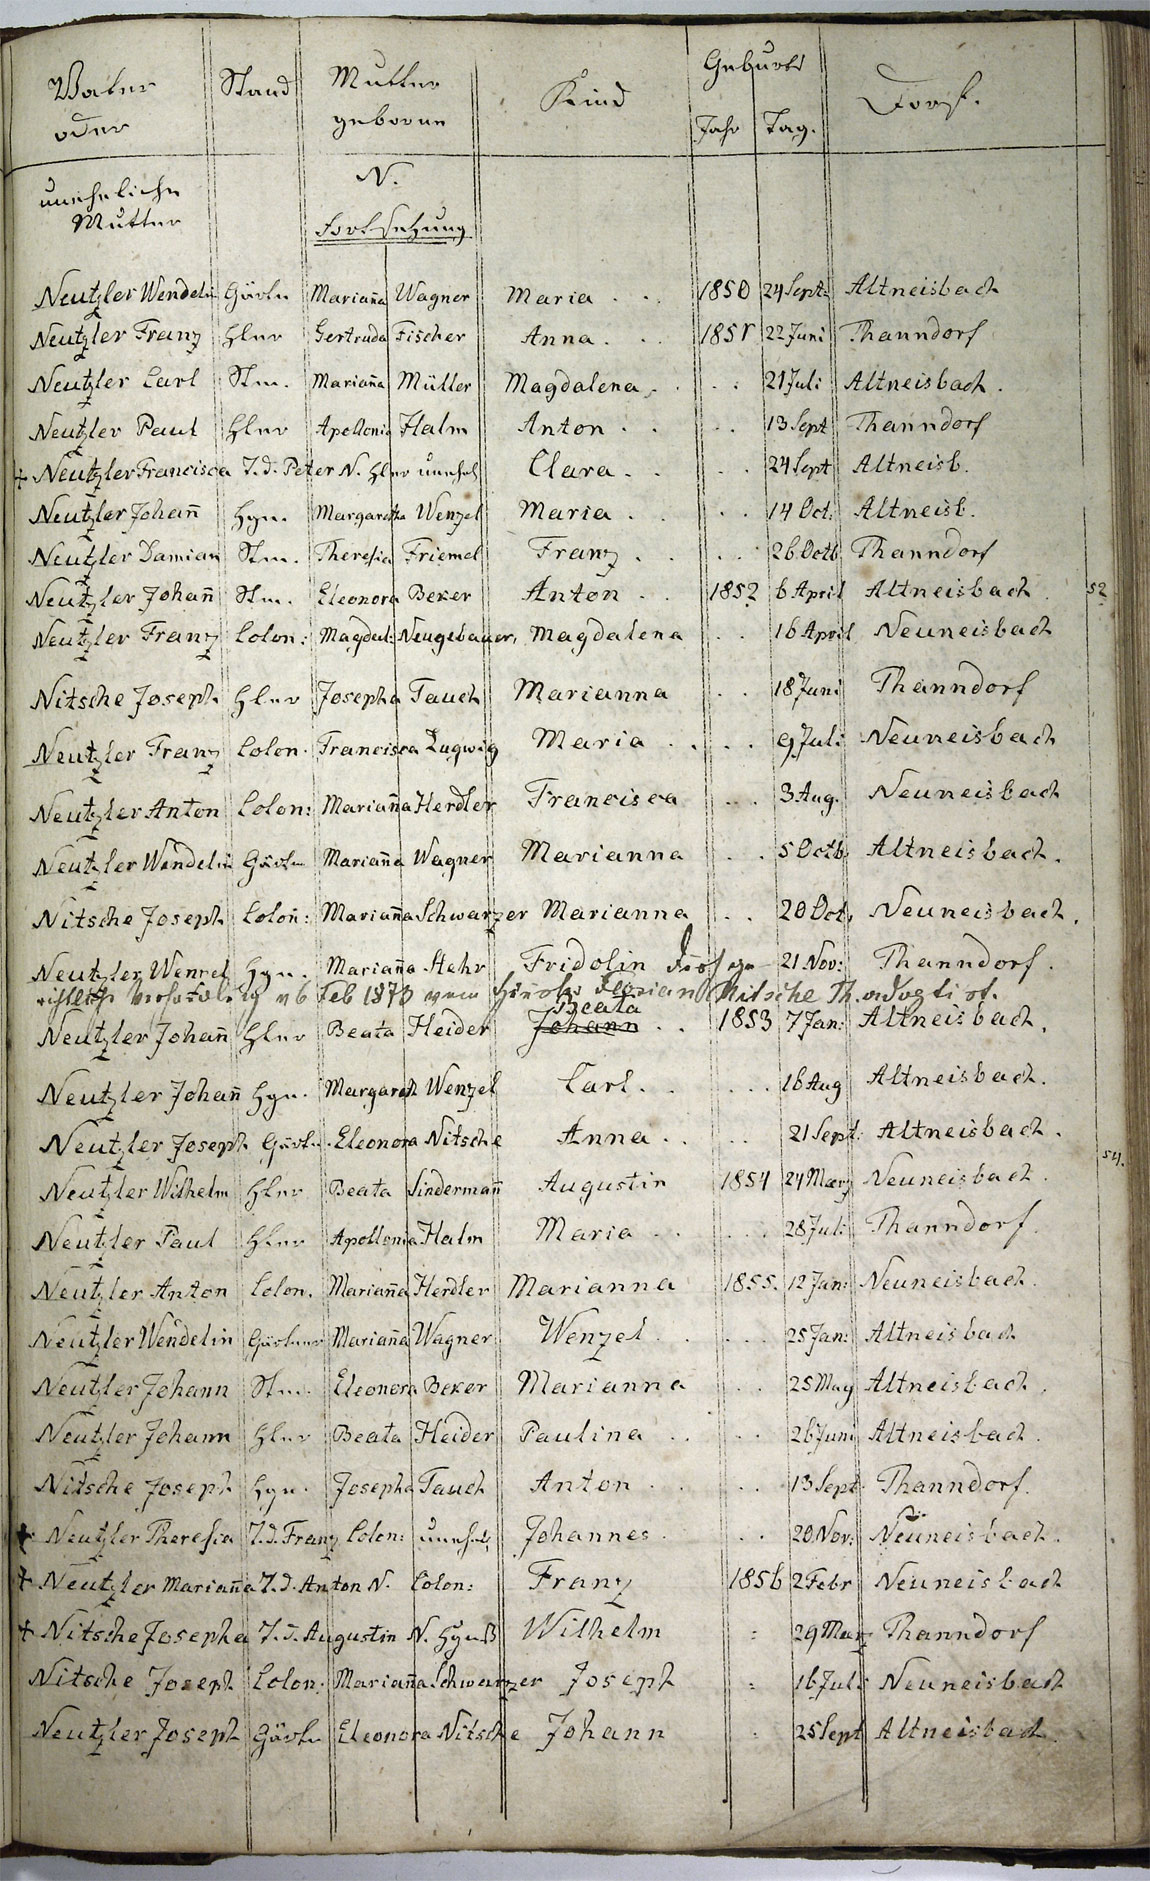 Vater Stand Mutter Kind Geburts Dorf.
oder geborne Jahr Tag.
uneheliche N.
Mutter Fortsetzung
Neutzler Wendelin Gärtn Mariaña Wagner Maria . . . 1850 24 Sept: Altneisbach
Neutzler Franz Hler Gertruda Fischer Anna . . . 1851 22 Juni Thanndorf
Neutzler Carl Stm. Mariaña Müller Magdalena . . . . 21 Juli Altneisbach.
Neutzler Paul Hler Apollonia Halm Anton . . . . 13 Sept Thanndorf
+ Neutzler Francisca T. d. Peter N. Hler unehel Clara . . . . 24 Sept Altneisb.
Neutzler Johañ Hgn. Margaretha Wenzel Maria . . . . 14 Oct. Altneisb.
Neutzler Damian Stm. Theresia Friemel Franz . . . 26 Octb Thanndorf
Neutzler Johañ Stm. Eleonora Beker Anton . . 1852 6 April Altneisbach. 52
Neutzler Franz Colon: Magdal: Neugebauer, Magdalena . . 16 April Neuneisbach
Nitsche Joseph Hler Josepha Tauch Marianna . . 18 Juni Thanndorf
Neutzler Franz Colon. Francisca Lugwig Maria . . . . 9 Juli Neuneisbach
Neutzler Anton Colon: Mariaña Herdler Francisca . . . 3 Aug. Neuneisbach
Neutzler Wendelin Gärtn Mariaña Wagner Marianna . . 5 Octb. Altneisbach.
Nitsche Joseph Coloñ: Mariaña Schwarzer Marianna . . 20 Oct. Neuneisbach.
Neutzler Wenzel Hgn. Mariaña Stehr Fridolin 21 Nov: Thanndorf.
Feb 1873 Florian Nitsche Th. adoptirt.
Beata
Neutzler Johañ Hler Beata Heider Johann . . 1853 7 Jan: Altneisbach.
Neutzler Johañ Hgn. Margareth Wenzel Carl . . . . . 16 Aug Altneisbach.
Neutzler Joseph Gärtn. Eleonora Nitsche Anna . . . . 21 Sept: Altneisbach.
54.
Neutzler Wilhelm Hler Beata Sindermañ Augustin 1854 24 Maerz Neuneisbach.
Neutzler Paul Hler Apollonia Halm Maria . . . . . 28 Juli Thanndorf.
Neutzler Anton Colon. Mariaña Herdler Marianna 1855. 12 Jan: Neuneisbach.
Neutzler Wendelin Gärtner Mariaña Wagner Wenzel . . . . 25 Jan: Altneisbach
Neutzler Johann Stm. Eleonora Beker Marianna . . 25 May Altneisbach.
Neutzler Johann Hler Beata Heider Paulina . . . . 26 Juni Altneisbach.
Nitsche Joseph Hgn. Josepha Tauch Anton . . . . 13 Sept. Thanndorf.
+ Neutzler Theresia T. d. Franz Colon: unehel. Johannes . . . 20 Nov: Neuneisbach.
+ Neutzler Mariaña T. d. Anton N. Colon: Franz 1856 2 Febr Neuneisbach
+ Nitsche Josepha T. d. Augustin N. Wilhelm : 29 Marz Thanndorf
Nitsche Joseph Colon: Mariaña Schwarzer Joseph : 16 Juli Neuneisbach
Neutzler Joseph Gärtn Eleonora Nitsche Johann . 25 Sept Altneisbach.